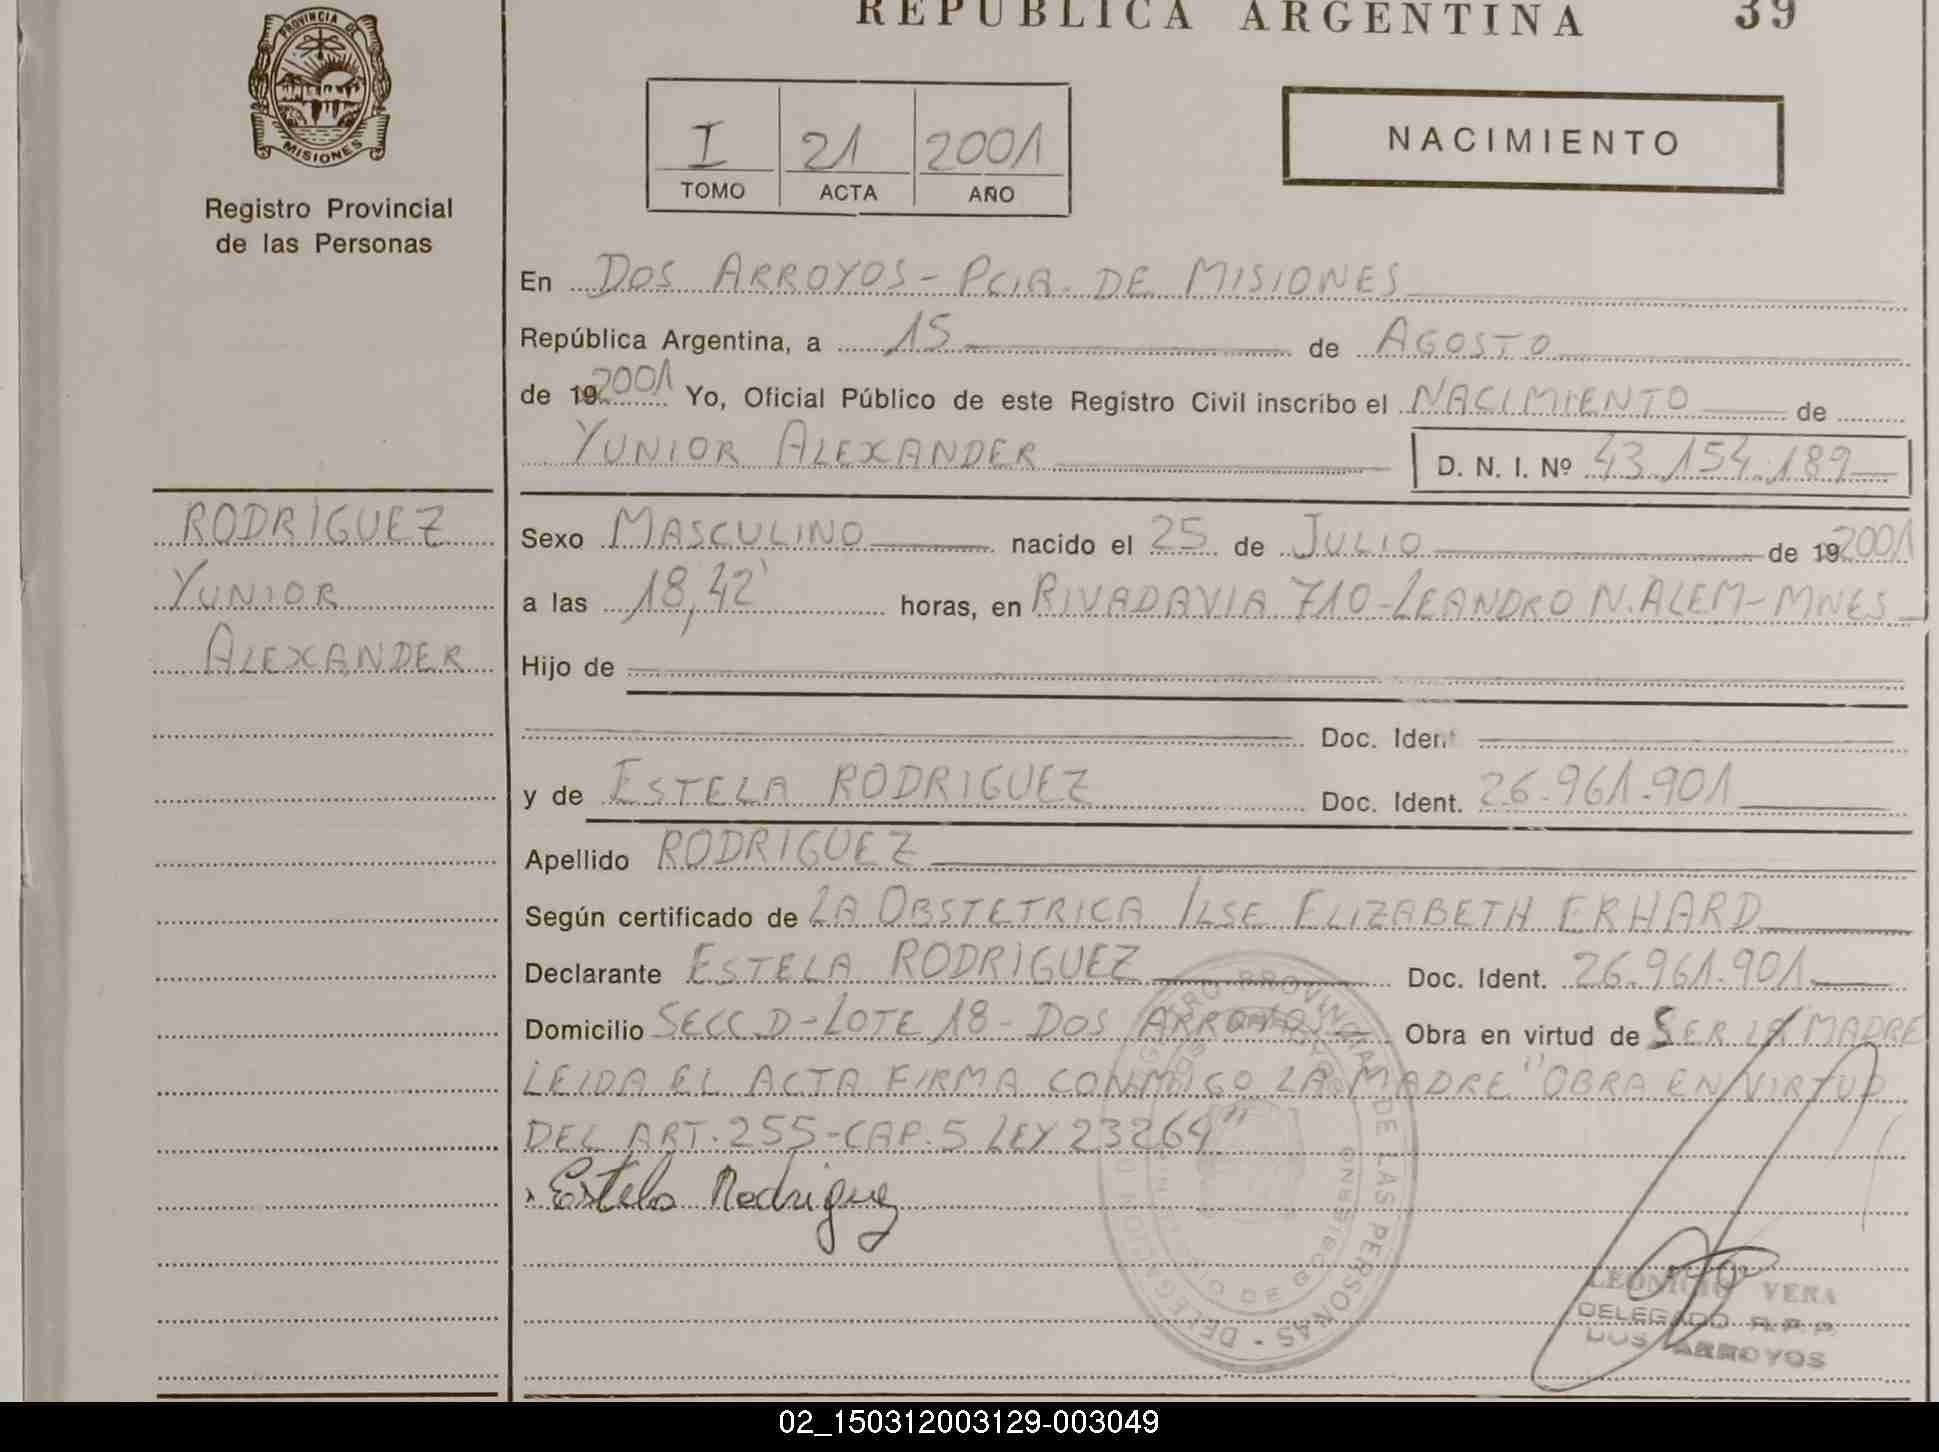 REPUBLICA ARGENTINA 39
PROVINCIA DE
MISIONES
Registro Provincial
de las Personas
I 21 2001
TOMO ACTA AÑO
NACIMIENTO
En DOS ARROYOS - PCIA. DE MISIONES
República Argentina, a 15 de AGOSTO
de 19 2001 Yo, Oficial Público de este Registro Civil inscribo el NACIMIENTO de
YUNIOR ALEXANDER D. N. I. Nº 43.154.189
RODRIGUEZ
YUNIOR
ALEXANDER
Sexo MASCULINO nacido el 25 de JULIO de 19 2001
a las 18,42' horas, en RIVADAVIA 710-LEANDRO N. ALEM-MNES
Hijo de
Doc. Ident
y de ESTELA RODRIGUEZ Doc. Ident. 26.961.901
Apellido RODRIGUEZ
Según certificado de LA OBSTETRICA ILSE ELIZABETH ERHARD
Declarante ESTELA RODRIGUEZ Doc. Ident. 26.961.901
Domicilio SECC.D-LOTE 18-DOS ARROYOS Obra en virtud de SER LA MADRE
LEIDA EL ACTA FIRMA CONMIGO LA MADRE "OBRA EN VIRTUD
DEL ART. 255-CAP. 5 LEY 23264"
Estela Rodriguez
REGISTRO PROVINCIAL DE LAS PERSONAS - DELEGACION
DOS ARROYOS
MINISTERIO DE GOBIERNO
LEONICIO VERA
DELEGADO R.P.P.
DOS ARROYOS
02_150312003129-003049